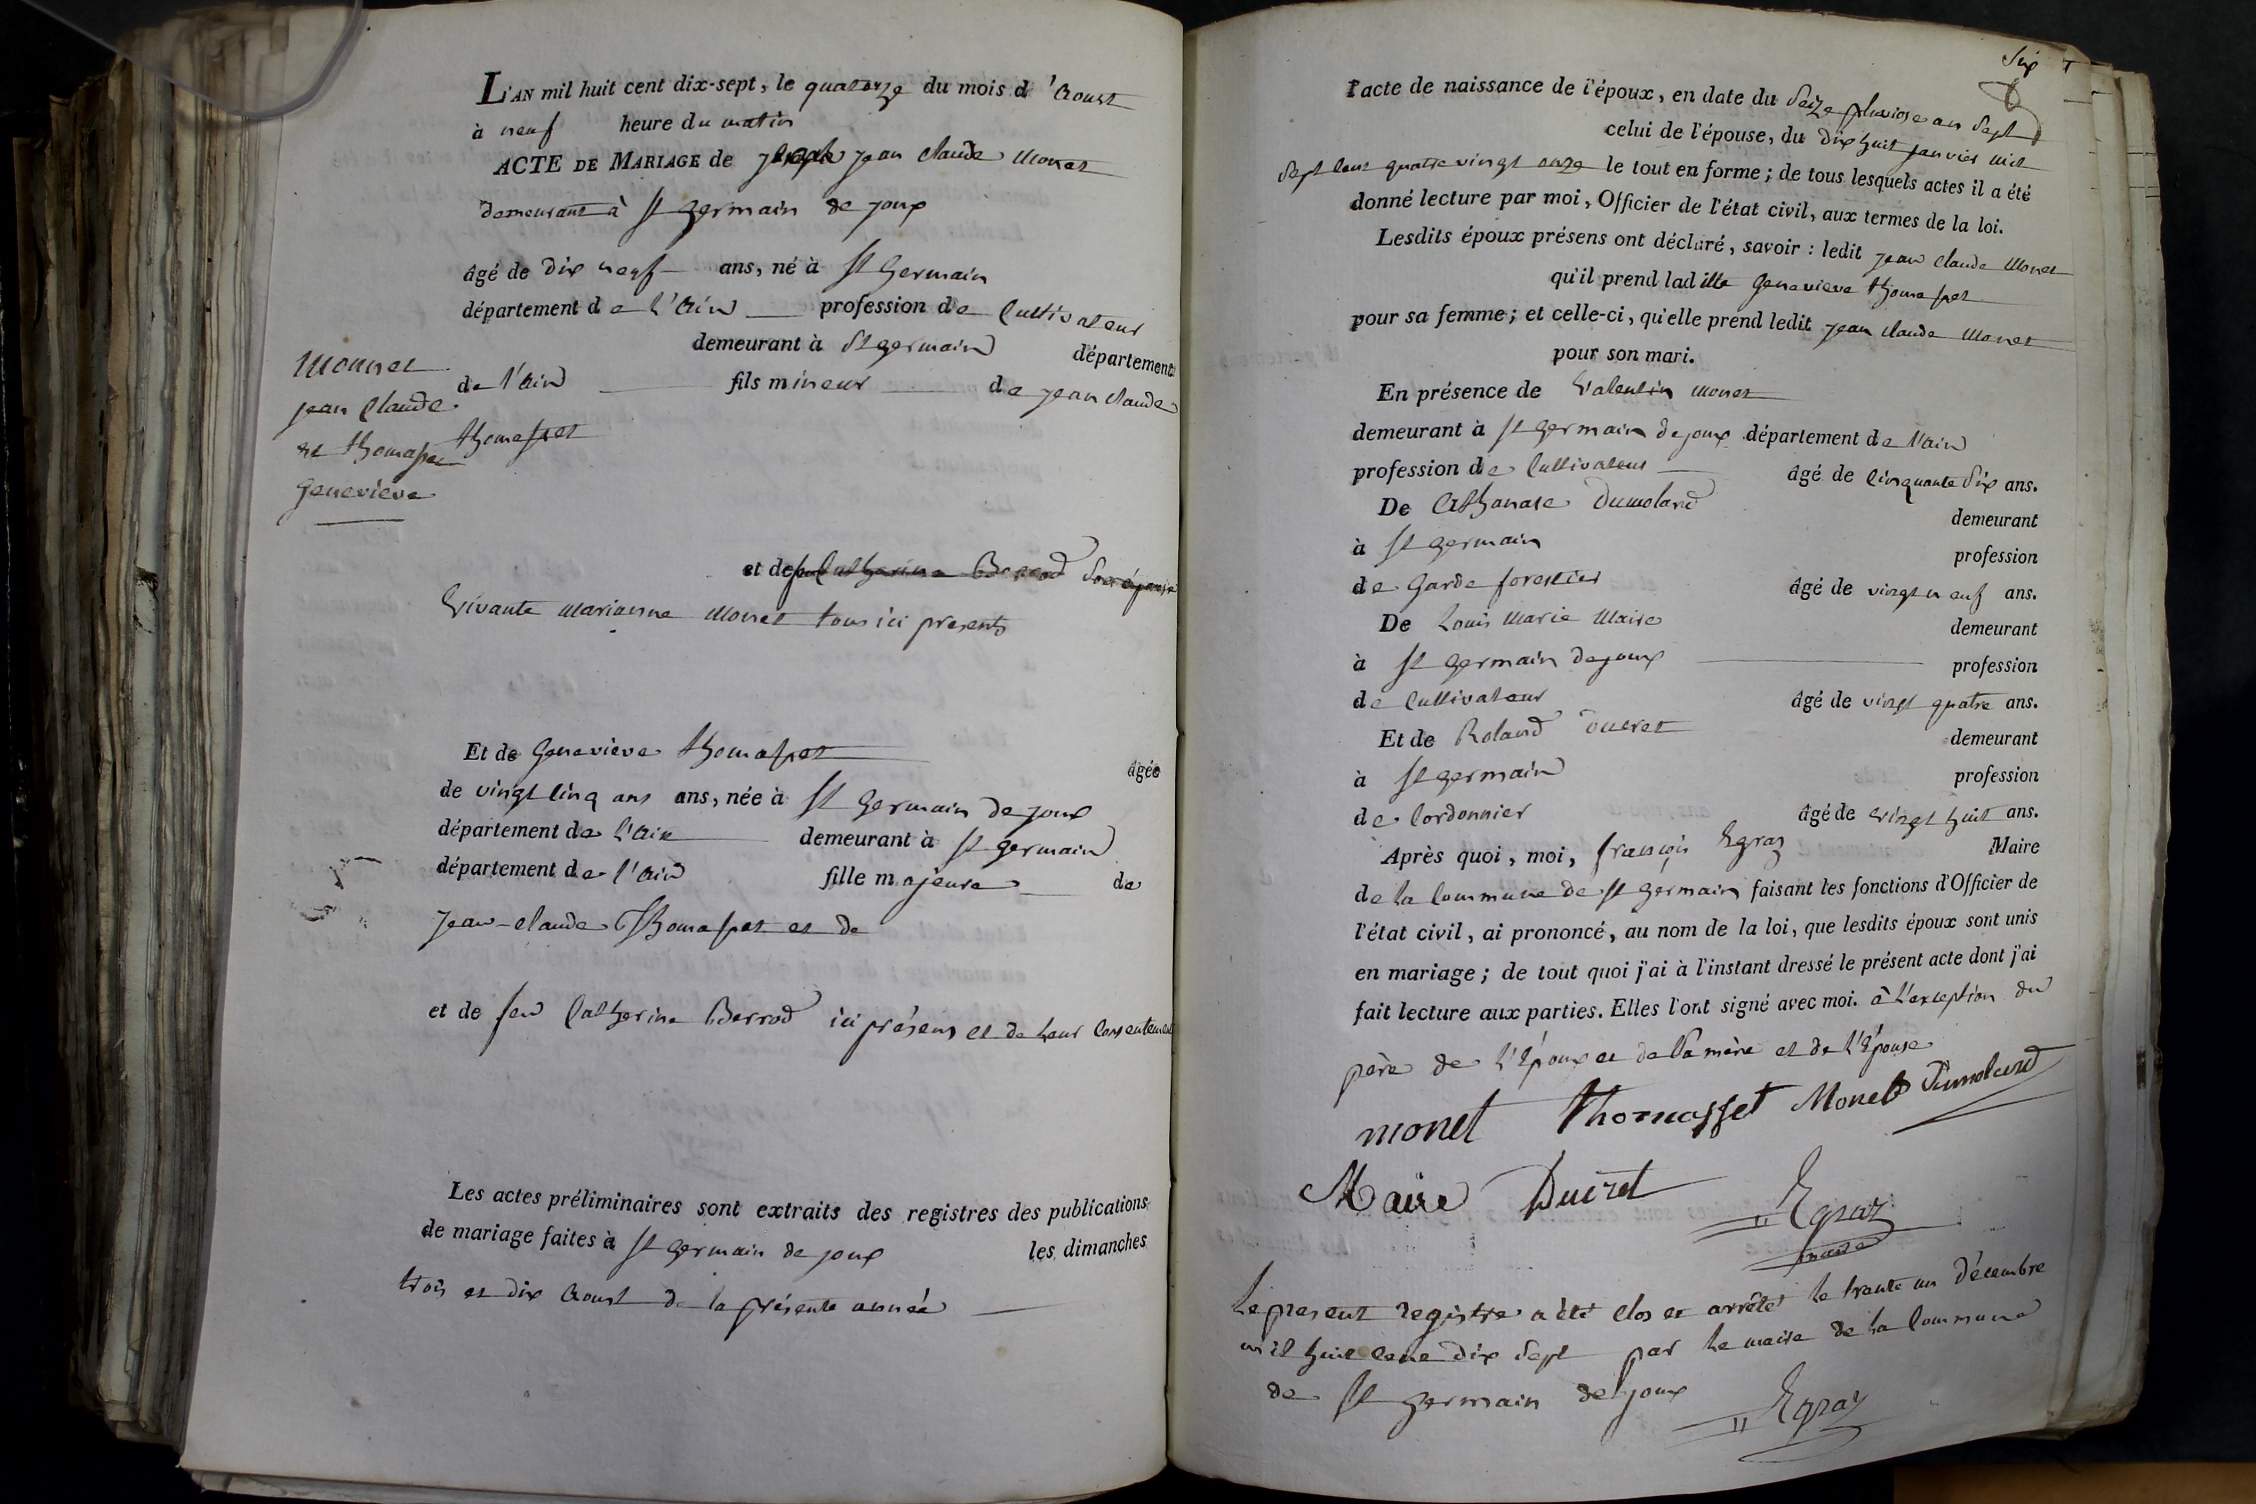 L'AN mil huit cent dix-sept, le quatorze du mois d'Aoust
à neuf heure du matin
ACTE DE MARIAGE de jean claude Monet
demeurant à St germain de joux
âgé de dix neuf ans, né à St Germain
département de l'Ain profession de Cultivateur
demeurant à St germain département
de l'ain fils mineur de jean claude
thomasset
Monnet
jean Claude
et thomasset
Genevieve
et de feu Catherine Berrod Son épouse
Vivante marianne Monet tous ici presents
Et de Genevieve thomasset âgée
de vingt cinq ans ans, née à St Germain de joux
département de l'Ain demeurant à St germain
département de l'Ain fille majeure de
jean-claude Thomasset et de
et de feu Catherine Berrod ici présens et de leur Consentement
Les actes préliminaires sont extraits des registres des publications
de mariage faites à St germain de joux les dimanches
trois et dix Aoust de la présente année
Six
l'acte de naissance de l'époux, en date du Seize pluviose an Sept
celui de l'épouse, du dix huit janvier mil
Sept Cent quatre vingt onze le tout en forme; de tous lesquels actes il a été
donné lecture par moi, Officier de l'état civil, aux termes de la loi.
Lesdits époux présens ont déclaré, savoir: ledit jean claude Monet
qu'il prend laditte Genevieve thomasset
pour sa femme; et celle-ci, qu'elle prend ledit jean claude Monet
pour son mari.
En présence de Valentin Monet
demeurant à St germain de joux département de l'ain
profession de Cultivateur âgé de Cinquante Six ans.
De Athanase Dumolard demeurant
à St germain profession
de Garde forestier âgé de vingt neuf ans.
De Louis Marie Maire demeurant
à St germain de joux profession
de Cultivateur âgé de vingt quatre ans.
Et de Roland Ducret demeurant
à St germain profession
de Cordonnier âgé de vingt huit ans.
Après quoi, moi, françois Egraz Maire
de la Commune de St germain faisant les fonctions d'Officier de
l'état civil, ai prononcé, au nom de la loi, que lesdits époux sont unis
en mariage; de tout quoi j'ai à l'instant dressé le présent acte dont j'ai
fait lecture aux parties. Elles l'ont signé avec moi. à L'exception du
père de L'Époux et de Sa mère et de L'Épouse
monet thomasset Monet Dumolard
Maire Ducret Egraz
maire
Le present registre a été clos et arrêté le trante un Décembre
mil huit Cent dix Sept par le maire de la Commune
de St germain de joux Egraz